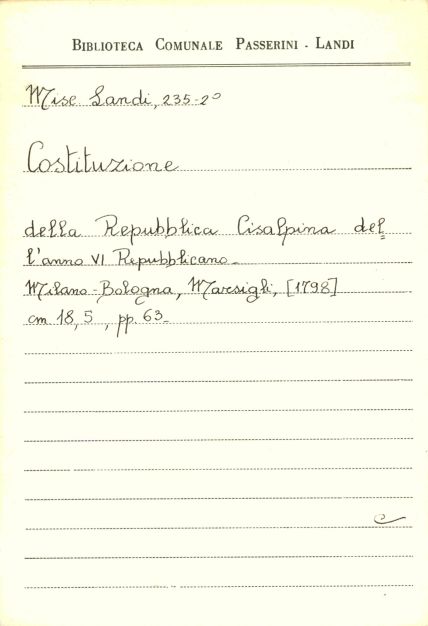 BIBLIOTECA COMUNALE PASSERINI - LANDI
Misc. Landi, 235-2º
Costituzione
della Repubblica Cisalpina del=
l'anno VI Repubblicano_
Milano-Bologna, Marsigli, [1798]
cm 18,5, pp. 63_